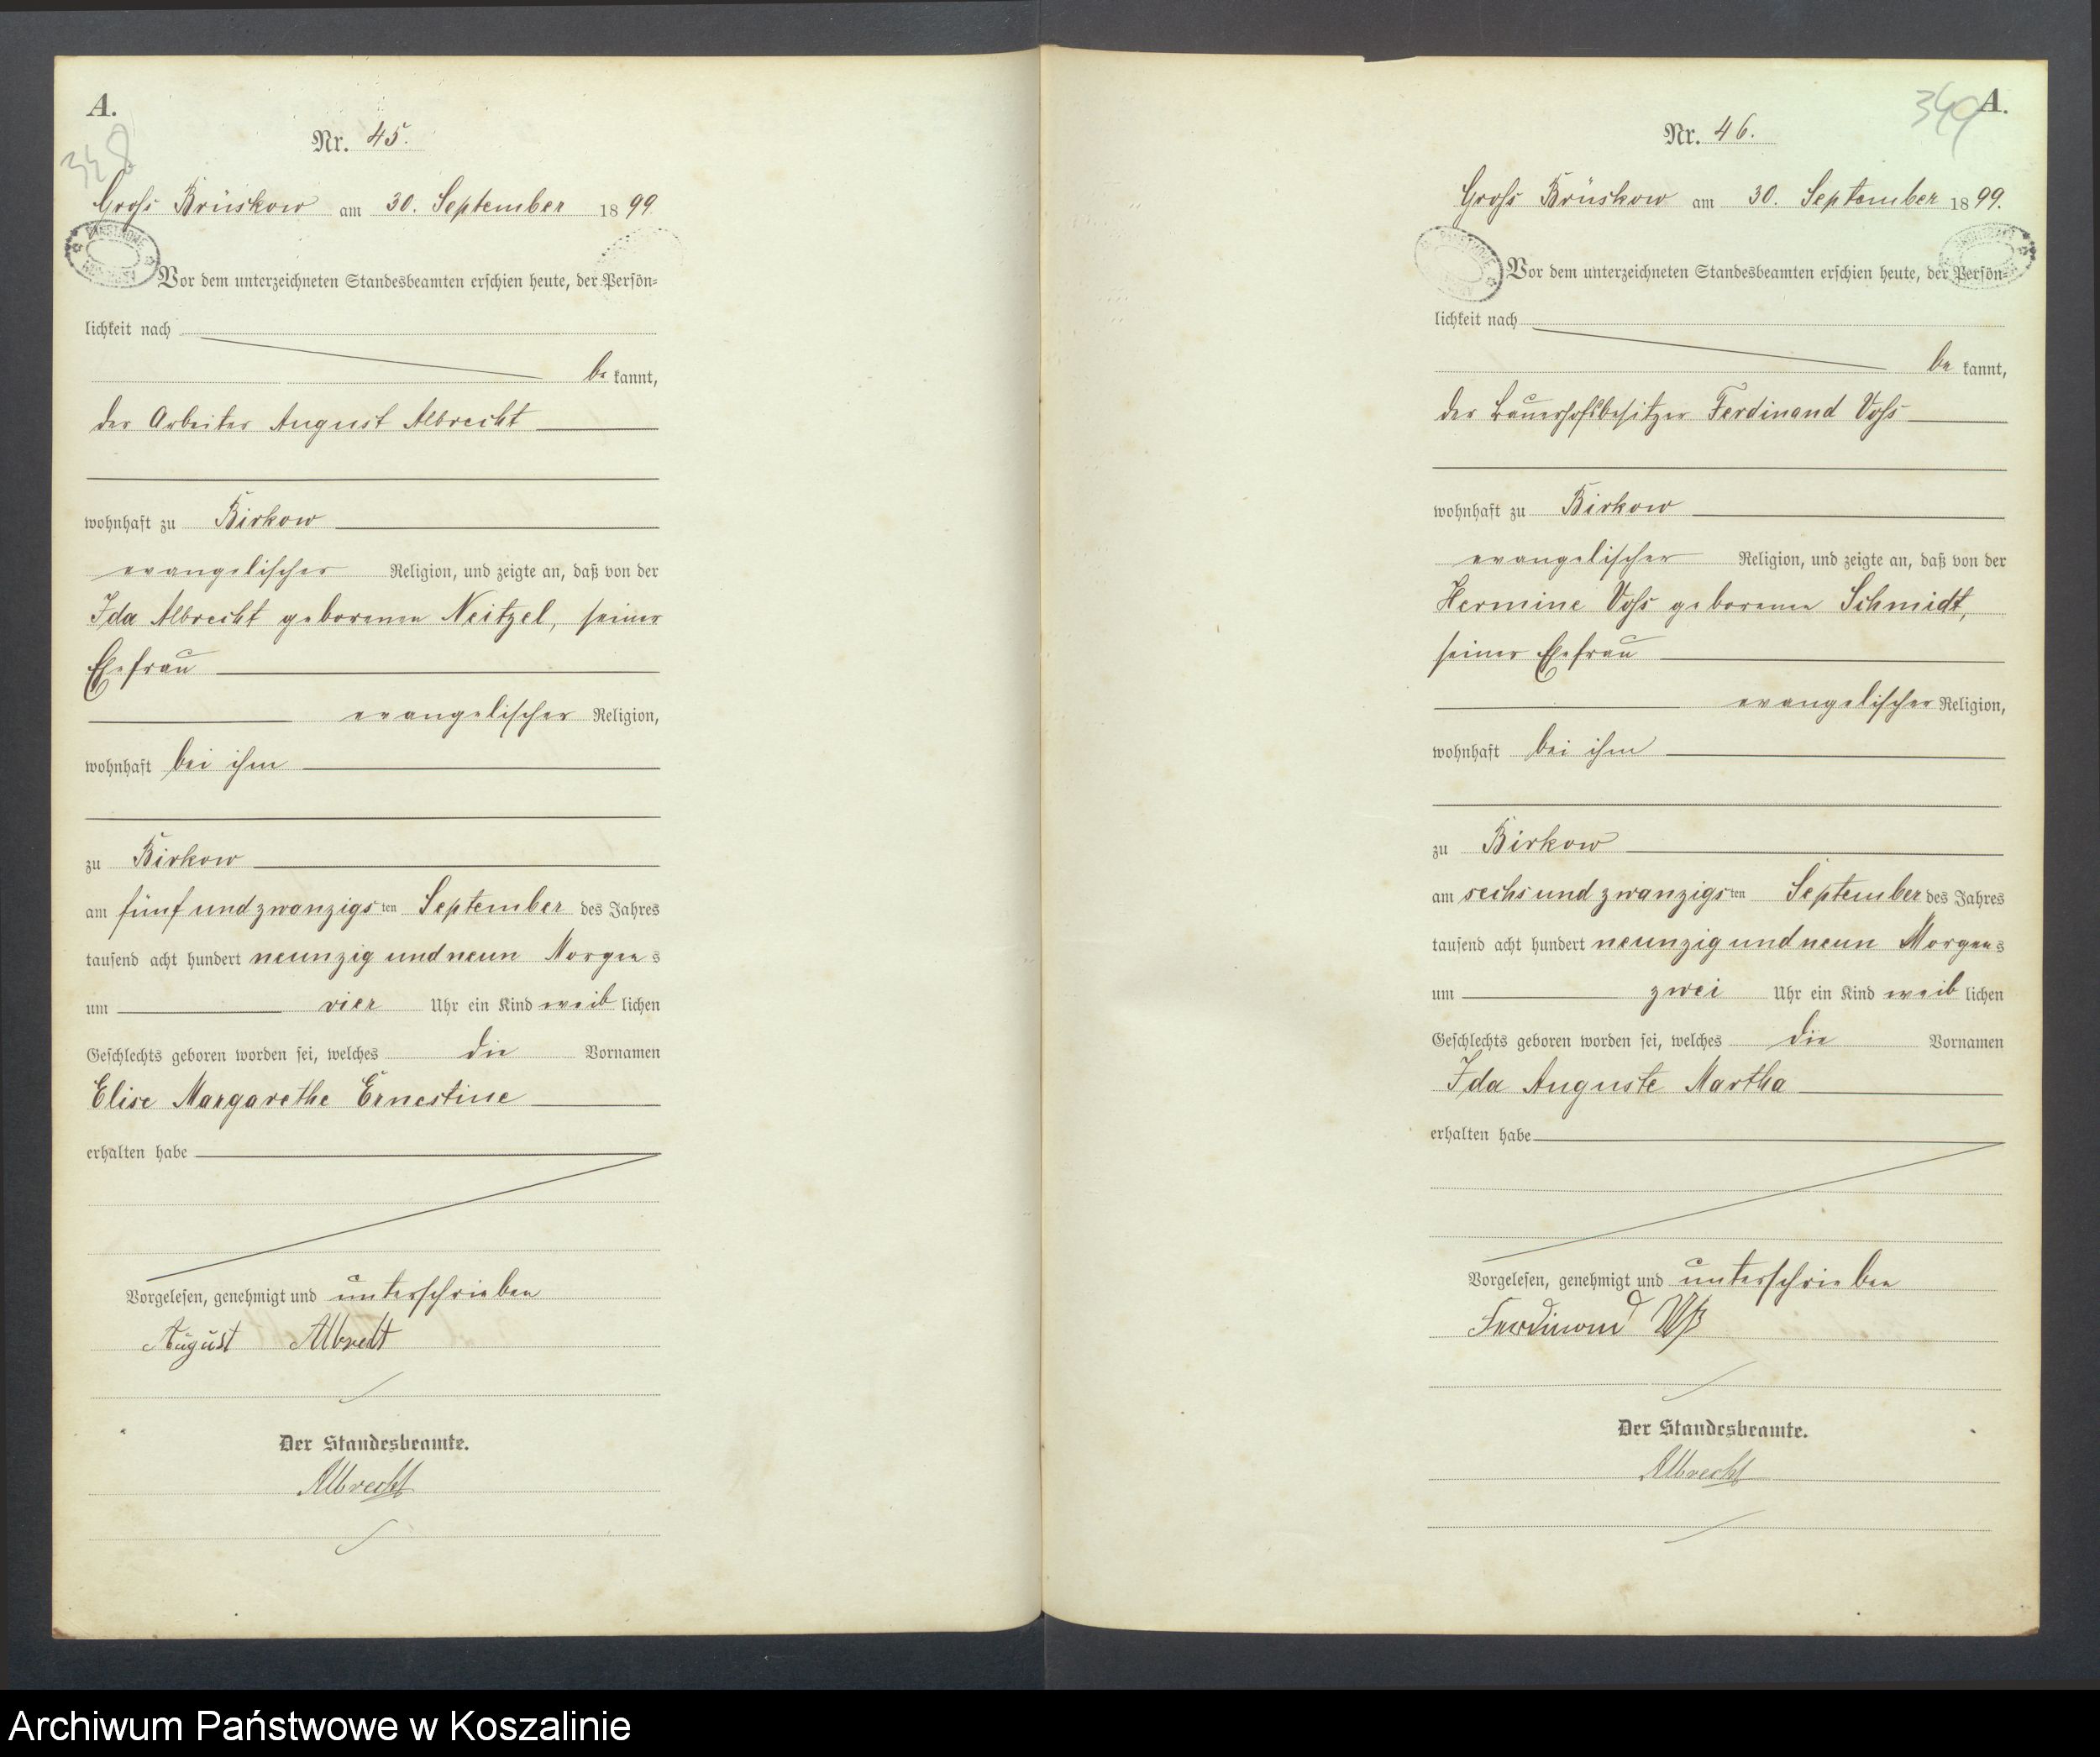 A.
348
Nr. 45.
Groß Brüskow am 30. September 1899
Vor dem unterzeichneten Standesbeamten erschien heute, der Persön-
lichkeit nach
be kannt,
der Arbeiter August Albrecht
wohnhaft zu Birkow
evangelischer Religion, und zeigte an, daß von der
Ida Albrecht geborenen Neitzel, seiner
Ehefrau
evangelischer Religion,
wohnhaft bei ihm
zu Birkow
am fünf und zwanzigs ten September des Jahres
tausend acht hundert neunzig und neun Morgen s
um vier Uhr ein Kind weib lichen
Geschlechts geboren worden sei, welches die Vornamen
Elise Margarethe Ernestine
erhalten habe
Vorgelesen, genehmigt und unterschrieben
August Albrecht
Der Standesbeamte.
Albrecht
349 A.
Nr. 46.
Groß Brüskow am 30. September 1899.
Vor dem unterzeichneten Standesbeamten erschien heute, der Persön-
lichkeit nach
be kannt,
der Bauerhofsbesitzer Ferdinand Voß
wohnhaft zu Birkow
evangelischer Religion, und zeigte an, daß von der
Hermine Voß geborenen Schmidt,
seiner Ehefrau
evangelischer Religion,
wohnhaft bei ihm
zu Birkow
am sechs und zwanzigs ten September des Jahres
tausend acht hundert neunzig und neun Morgen s
um zwei Uhr ein Kind weib lichen
Geschlechts geboren worden sei, welches die Vornamen
Ida Auguste Martha
erhalten habe
Vorgelesen, genehmigt und unterschrieben
Ferdinand Voß
Der Standesbeamte.
Albrecht
Archiwum Państwowe w Koszalinie